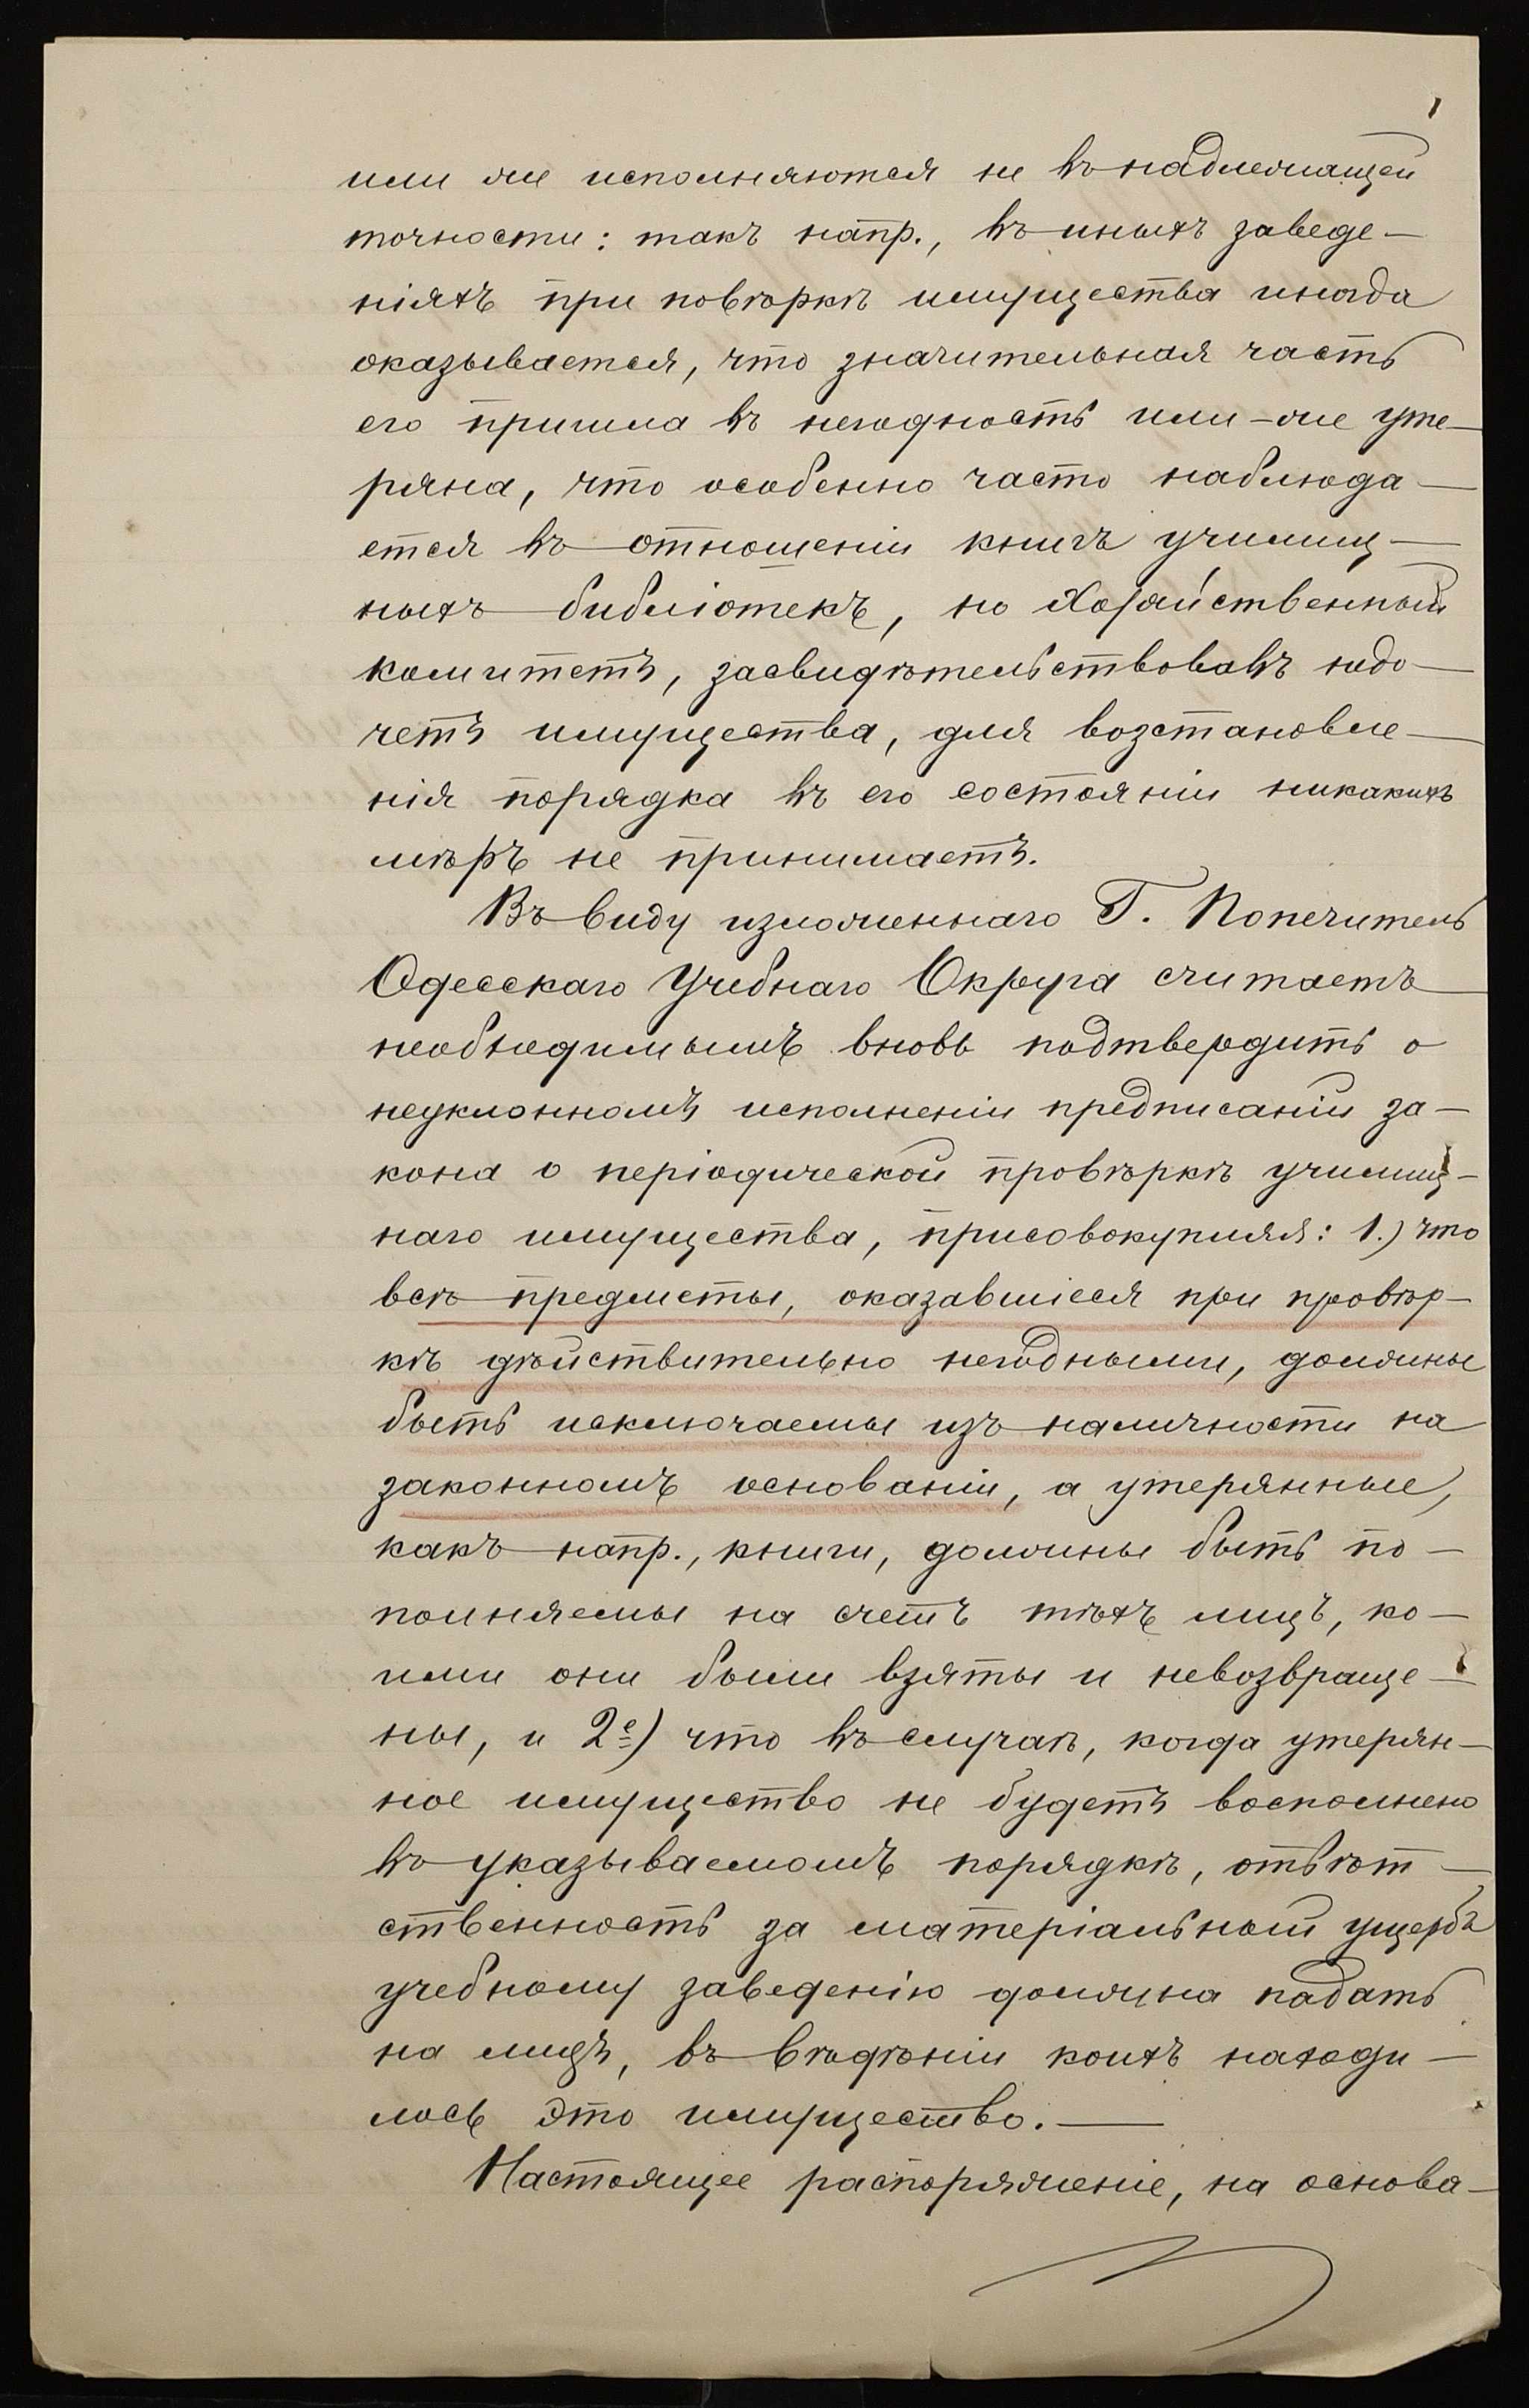 или же исполняются не въ надлежащей
точности: такъ напр., въ иныхъ заведе-
ніяхъ при повѣркѣ имущества иногда
оказывается, что значительная часть
его пришла въ негодность или-же уте-
ряна, что особенно часто наблюда-
ется въ отношеніи книгъ училищ-
ныхъ библіотекъ, но Хозяйственный
комитетъ, засвидѣтельствовавъ недо-
четъ имущества, для возстановле-
нія порядка въ его состояніи никакихъ
мѣръ не принимаетъ.
Въ виду изложеннаго Г. Попечитель
Одесскаго Учебнаго Округа считаетъ
необходимымъ вновь подтвердить о
неуклонномъ исполненіи предписаній за-
кона о періодической провѣркѣ училищ-
наго имущества, присовокупляя: 1.) что
всѣ предметы, оказавшіеся при провѣр-
кѣ дѣйствительно негодными, должны
быть исключаемы изъ наличности на
законномъ основаніи, а утерянные,
какъ напр., книги, должны быть по-
полняемы на счетъ тѣхъ лицъ, ко-
ими они были взяты и невозвраще-
ны, и 2е) что въ случаѣ, когда утерян-
ное имущество не будетъ восполнено
въ указываемомъ порядкѣ, отвѣт-
ственность за матеріальный ущербъ
учебному заведенію должна падать
на лицъ, въ вѣдѣніи коихъ находи-
лось это имущество.—
Настоящее распоряженіе, на основа-